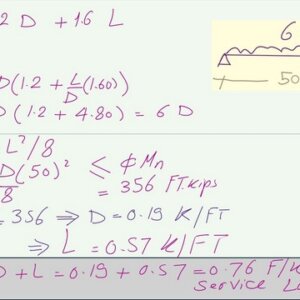 2 D + 1.6 L
6
D(1.2 + L/D (1.60))
50
D(1.2 + 4.80) = 6 D
L²/8
D(50)²/8 ≤ φMn
= 356 FT.kips
= 356 ⇒ D = 0.19 K/FT
⇒ L = 0.57 K/FT
D + L = 0.19 + 0.57 = 0.76 F/K
service L